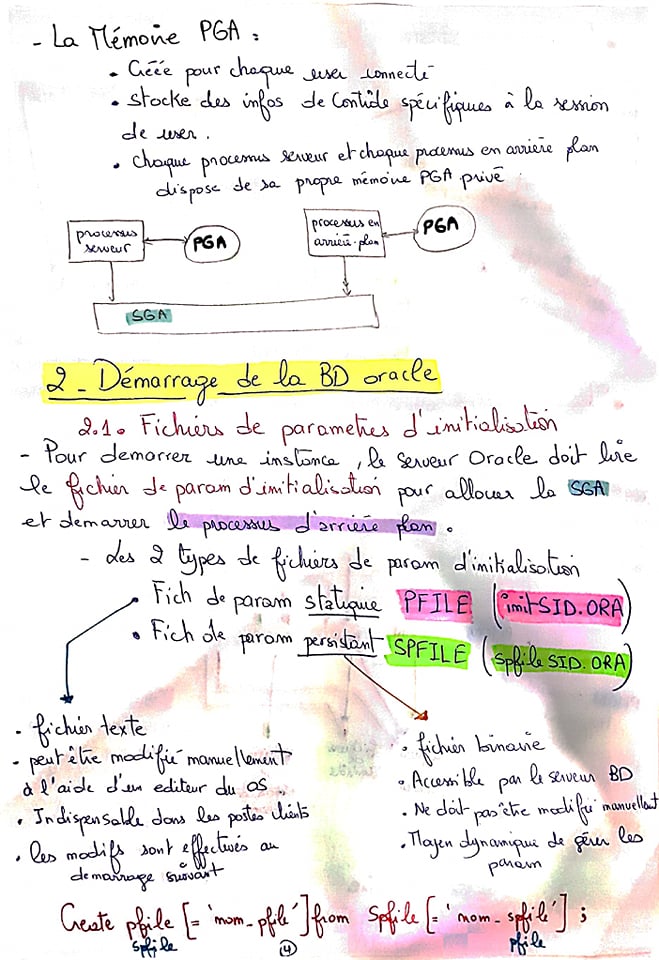 - La Mémoire PGA :
• Créée pour chaque user connecté
• Stocke des infos de Contrôle spécifiques à la session
de user.
• Chaque processus serveur et chaque processus en arrière plan
dispose de sa propre mémoire PGA privé
processus
serveur
PGA
processus en
arrière-plan
PGA
SGA
2 - Démarrage de la BD oracle
2.1. Fichiers de parametres d'initialisation
- Pour demarrer une instance, le serveur Oracle doit lire
le fichier de param d'initialisation pour allouer la SGA
et demarrer le processus d'arrière plan.
- Les 2 types de fichiers de param d'initialisation
• Fich de param statique PFILE (initSID.ORA)
• Fich de param persistant SPFILE (spfile SID.ORA)
- fichier texte
- peut être modifié manuellement
à l'aide d'un editeur du OS.
• Indispensable dans les postes clients
• les modifs sont effectivés au
demarrage suivant
• fichier binaire
• Accessible par le serveur BD
• Ne doit pas être modifié manuellemt
• Moyen dynamique de gérer les
param
Create pfile [= 'nom_pfile'] from Spfile [= 'nom_spfile'] ;
spfile
pfile
4